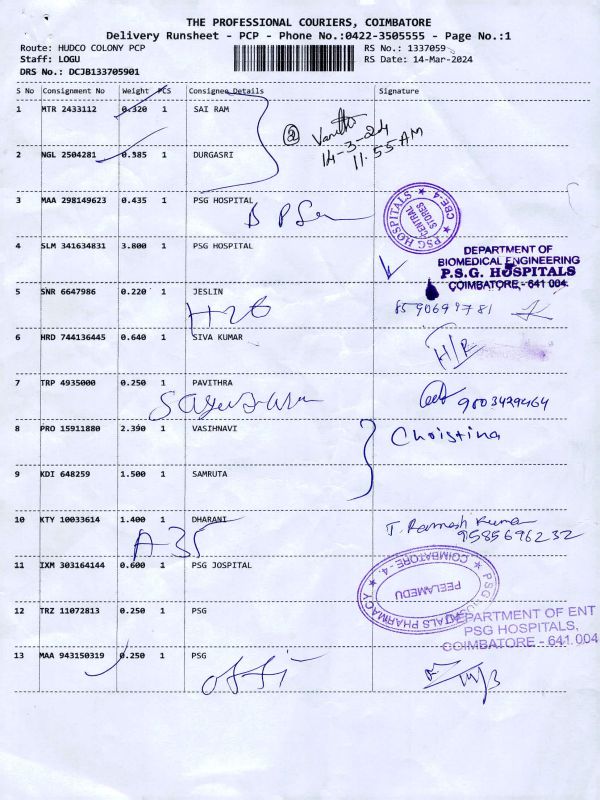 THE PROFESSIONAL COURIERS, COIMBATORE
Delivery Runsheet - PCP - Phone No.:0422-3505555 - Page No.:1
Route: HUDCO COLONY PCP
RS No.: 1337059
Staff: LOGU
RS Date: 14-Mar-2024
DRS No.: DCJB133705901
S No Consignment No Weight PCS Consignee Details Signature
1 MTR 2433112 0.320 1 SAI RAM
14-3-24
11.55 AM
2 NGL 2504281 0.385 1 DURGASRI
3 MAA 298149623 0.435 1 PSG HOSPITAL
PSG HOSPITALS ★ CBE-4 ★
CENTRAL STORES
4 SLM 341634831 3.800 1 PSG HOSPITAL
DEPARTMENT OF
BIOMEDICAL ENGINEERING
P.S.G. HOSPITALS
COIMBATORE - 641 004.
5 SNR 6647986 0.220 1 JESLIN
H26
8590699781
6 HRD 744136445 0.640 1 SIVA KUMAR
H/R
7 TRP 4935000 0.250 1 PAVITHRA
9003429464
8 PRO 15911880 2.390 1 VASIHNAVI
Christina
9 KDI 648259 1.500 1 SAMRUTA
10 KTY 10033614 1.400 1 DHARANI
T. Ramesh Kumar
9585696232
A35
11 IXM 303164144 0.600 1 PSG JOSPITAL
PSG HOSPITALS PHARMACY ★ COIMBATORE - 4. ★
PEELAMEDU
12 TRZ 11072813 0.250 1 PSG
DEPARTMENT OF ENT
PSG HOSPITALS,
COIMBATORE - 641.004
13 MAA 943150319 0.250 1 PSG
14/3